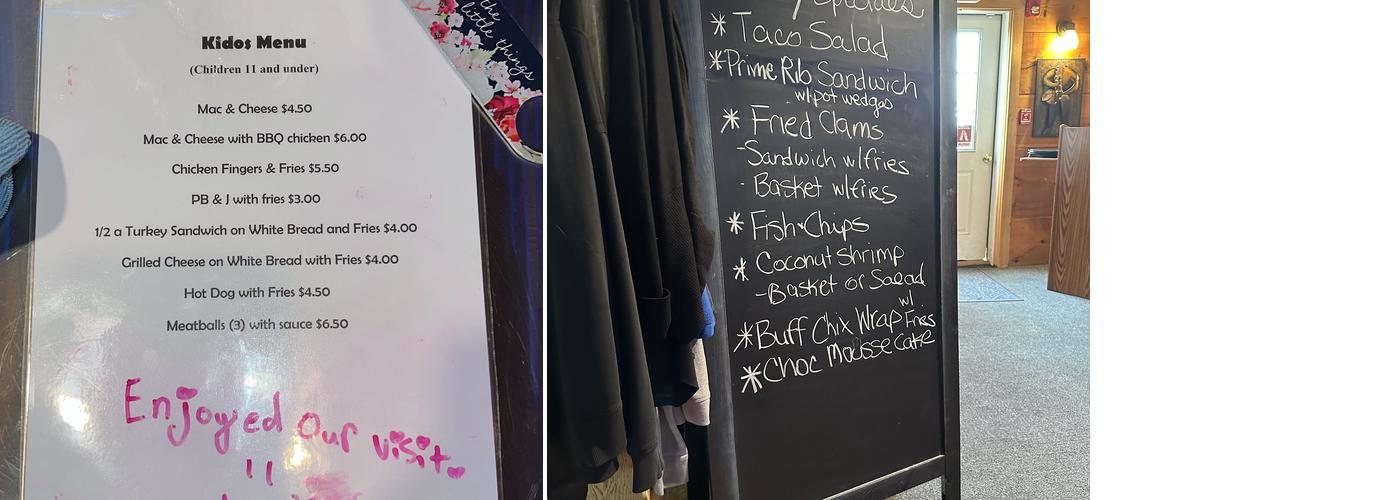 the
little things
Kidos Menu
(Children 11 and under)
Mac & Cheese $4.50
Mac & Cheese with BBQ chicken $6.00
Chicken Fingers & Fries $5.50
PB & J with fries $3.00
1/2 a Turkey Sandwich on White Bread and Fries $4.00
Grilled Cheese on White Bread with Fries $4.00
Hot Dog with Fries $4.50
Meatballs (3) with sauce $6.50
Enjoyed Our visit
!!
Specials
* Taco Salad
* Prime Rib Sandwich
w/pot wedges
* Fried Clams
- Sandwich w/fries
- Basket w/fries
* Fish + Chips
* Coconut Shrimp
- Basket or Salad
* Buff Chix Wrap w/ Fries
* Choc Mousse Cake